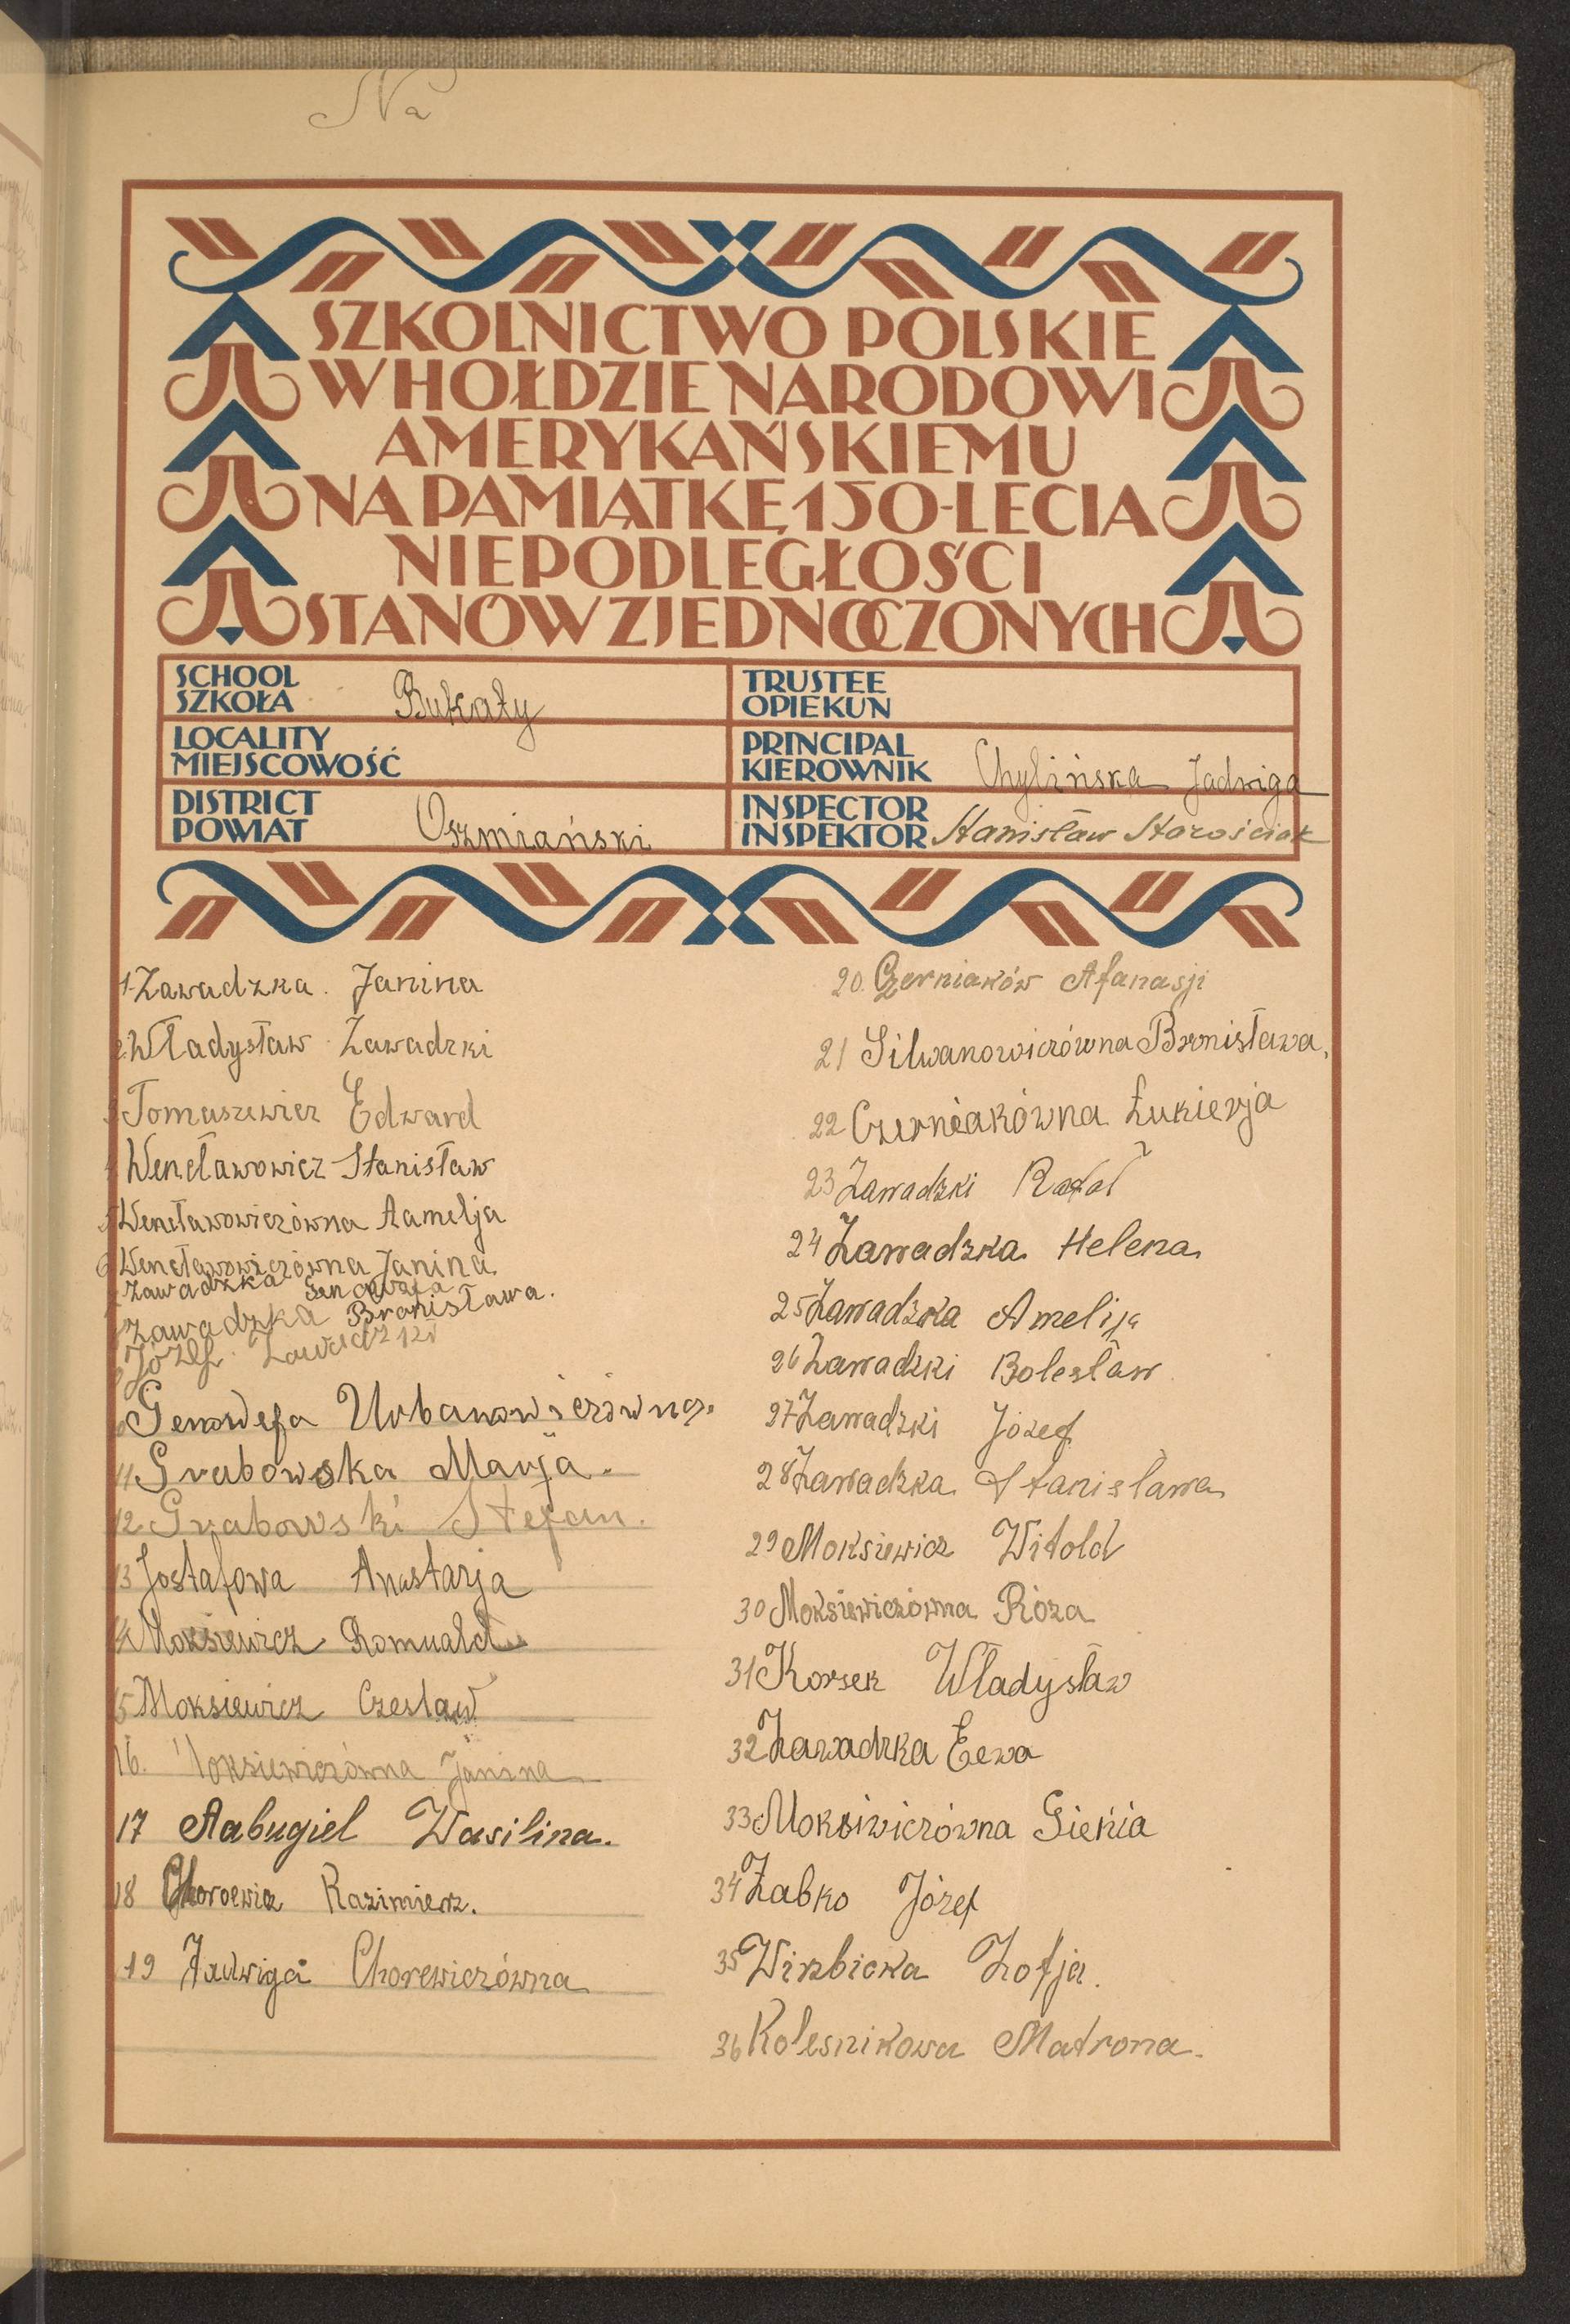 Na
SZKOLNICTWO POLSKIE
W HOŁDZIE NARODOWI
AMERYKAŃSKIEMU
NA PAMIĄTKĘ 150-LECIA
NIEPODLEGŁOŚCI
STANÓW ZJEDNOCZONYCH
SCHOOL
SZKOŁA Bukaty
TRUSTEE
OPIEKUN
LOCALITY
MIEJSCOWOŚĆ
PRINCIPAL
KIEROWNIK Chylińska Jadwiga
DISTRICT
POWIAT Oszmiański
INSPECTOR
INSPEKTOR Stanisław Starościak
1. Zawadzka Janina
2. Władysław Zawadzki
3 Tomaszewicz Edward
4 Wencławowicz Stanisław
5 Wencławowiczówna Aamelja
6 Wencławowiczówna Janina
7 Zawadzka Genowefa
8 Zawadzka Bronisława.
9 Józef Zawadzki
10 Genowefa Urbanowiczówna.
11 Grabowska Marja.
12 Grabowski Stefan.
13 Jostafowa Anastazja
14 Moksiewicz Romuald
15 Moksiewicz Czesław
16. Moksiewiczówna Janina
17 Aabugiel Wasilina.
18 Chorewicz Kazimierz.
19 Jadwiga Chorewiczówna
20. Czerniaków Afanasji
21 Silwanowiczówna Bronisława.
22 Czerniakówna Łukierja
23 Zawadzki Rafał
24 Zawadzka Helena
25 Zawadzka Amelija
26 Zawadzki Bolesław
27 Zawadzki Józef
28 Zawadzka Stanisława
29 Moksiewicz Witold
30 Moksiewiczówna Róza
31 Korsek Władysław
32 Zawadzka Eewa
33 Moksiwiczówna Gienia
34 Żabko Józef
35 Wirzbicka Zofja.
36 Kolesnikowa Matrona.